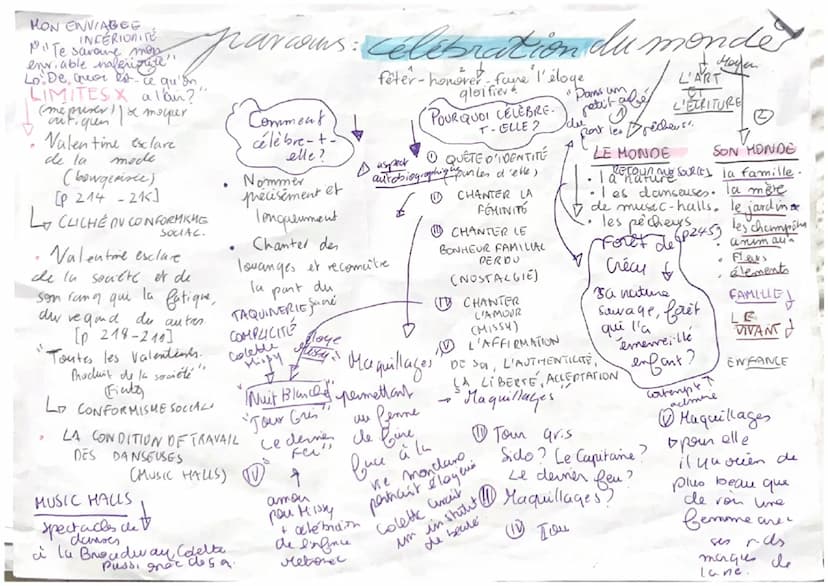 parcours: célébration du monde
fêter - honorer - faire l'éloge
glorifier
MON ENVIABLE
INFÉRIORITÉ
"Je savoure mon
enviable infériorité"
De quoi est-ce qu'on
a l'air?
LIMITES X
(mépriser) / se moquer
Valentine esclave
de la mode
(bourgeoisie)
[p 214 - 215]
CLICHÉ DU CONFORMISME
SOCIAL
Valentine esclave
de la société et de
son rang qui la fatigue,
du regard du autres
"Toutes les Valentines.
Produit de la société"
CONFORMISME SOCIAL
LA CONDITION DE TRAVAIL
DES DANSEUSES
(MUSIC HALLS)
MUSIC HALLS
spectacles de
danses
à la Broadway, Colette
Comment
célèbre-t-
elle?
Nommer
précisément et
longuement
Chanter des
louanges et reconnaître
la part du
TAQUINERIE
COMPLICITÉ
Colette
Missy
éloge
Missy
"Nuit Blanche"
"Jour Gris"
"Le dernier
feu"
IV
amour
pour Missy
+ célébration
de l'enfance
POURQUOI CÉLÈBRE-
T-ELLE?
aspect
autobiographique
I QUÊTE D'IDENTITÉ
(parler d'elle)
II CHANTER LA
FÉMINITÉ
III CHANTER LE
BONHEUR FAMILIAL
PERDU
(NOSTALGIE)
IV CHANTER
L'AMOUR
(MISSY)
V L'AFFIRMATION
DE SOI, L'AUTHENTICITÉ,
LA LIBERTÉ, ACCEPTATION
→ Maquillages
"Maquillages"
permettent
au femme
de faire
face à la
vie
portrait élogieux
Colette ouvrit
un institut
de beauté
II Jour gris
Sido? Le Capitaine?
Le dernier feu?
III Maquillages?
IV Jou
L'ART
ET
L'ÉCRITURE
Moyen
"Dans un
petit
du port les pêcheurs".
LE MONDE
RETOUR AUX SOURCES
la nature
les danseuses
de music-halls.
les pêcheurs
Forêt de (p245)
Crécy
sa nature
sauvage, forêt
qui l'a
émerveillé
enfant?
contempt
admire
2
SON MONDE
la famille
la mère
le jardin
les champêtre
animaux
Fleurs
éléments
FAMILLE
LE
VIVANT
ENFANCE
V Maquillages
pour elle
il n'y a rien de
plus beau que
de voir une
femme avec
ses rides
marques de